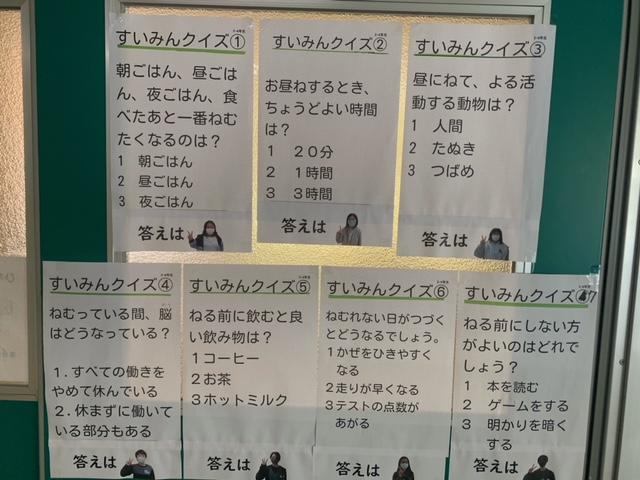 すいみんクイズ①
朝ごはん、昼ごは
ん、夜ごはん、食
べたあと一番ねむ
たくなるのは？
1 朝ごはん
2 昼ごはん
3 夜ごはん
答えは
すいみんクイズ②
お昼ねするとき、
ちょうどよい時間
は？
1 ２０分
2 １時間
3 ３時間
答えは
すいみんクイズ③
昼にねて、よる活
動する動物は？
1 人間
2 たぬき
3 つばめ
答えは
すいみんクイズ④
ねむっている間、脳
はどうなっている？
１．すべての働きを
やめて休んでいる
２．休まずに働いて
いる部分もある
答えは
すいみんクイズ⑤
ねる前に飲むと良
い飲み物は？
１コーヒー
２お茶
３ホットミルク
答えは
すいみんクイズ⑥
ねむれない日がつづく
とどうなるでしょう。
１かぜをひきやすく
なる
２走りが早くなる
３テストの点数が
あがる
答えは
すいみんクイズ7
ねる前にしない方
がよいのはどれで
しょう？
1 本を読む
2 ゲームをする
3 明かりを暗く
する
答えは